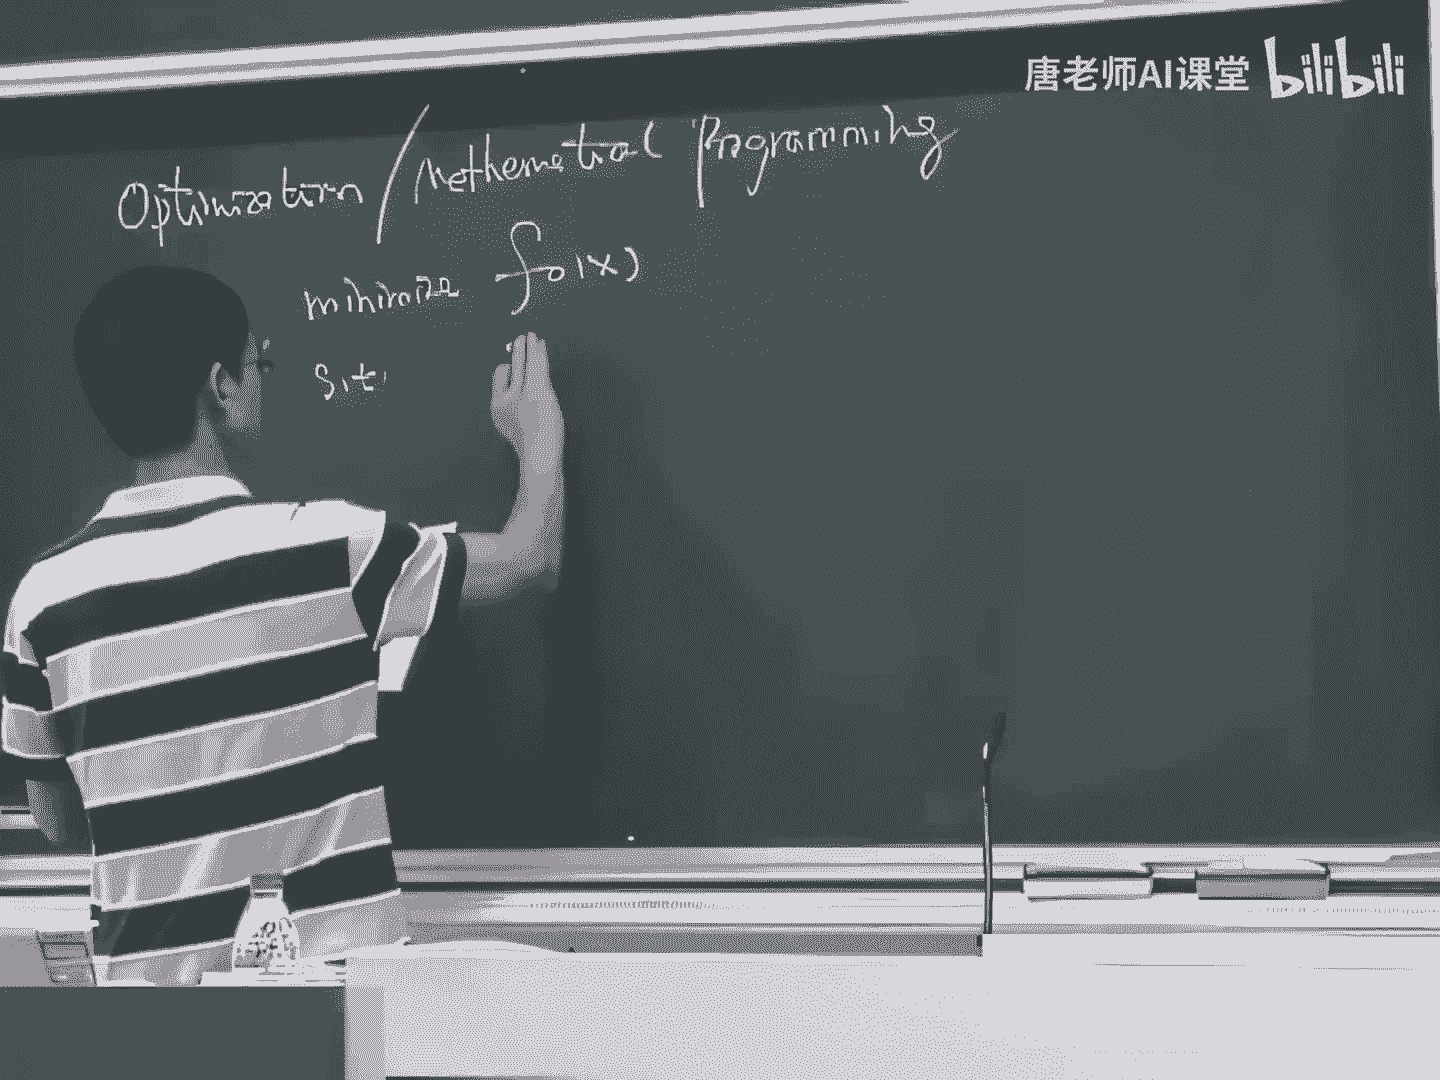 唐老师AI课堂 bilibili
Optimization / Mathematical Programming
minimize f₀(x)
s.t.